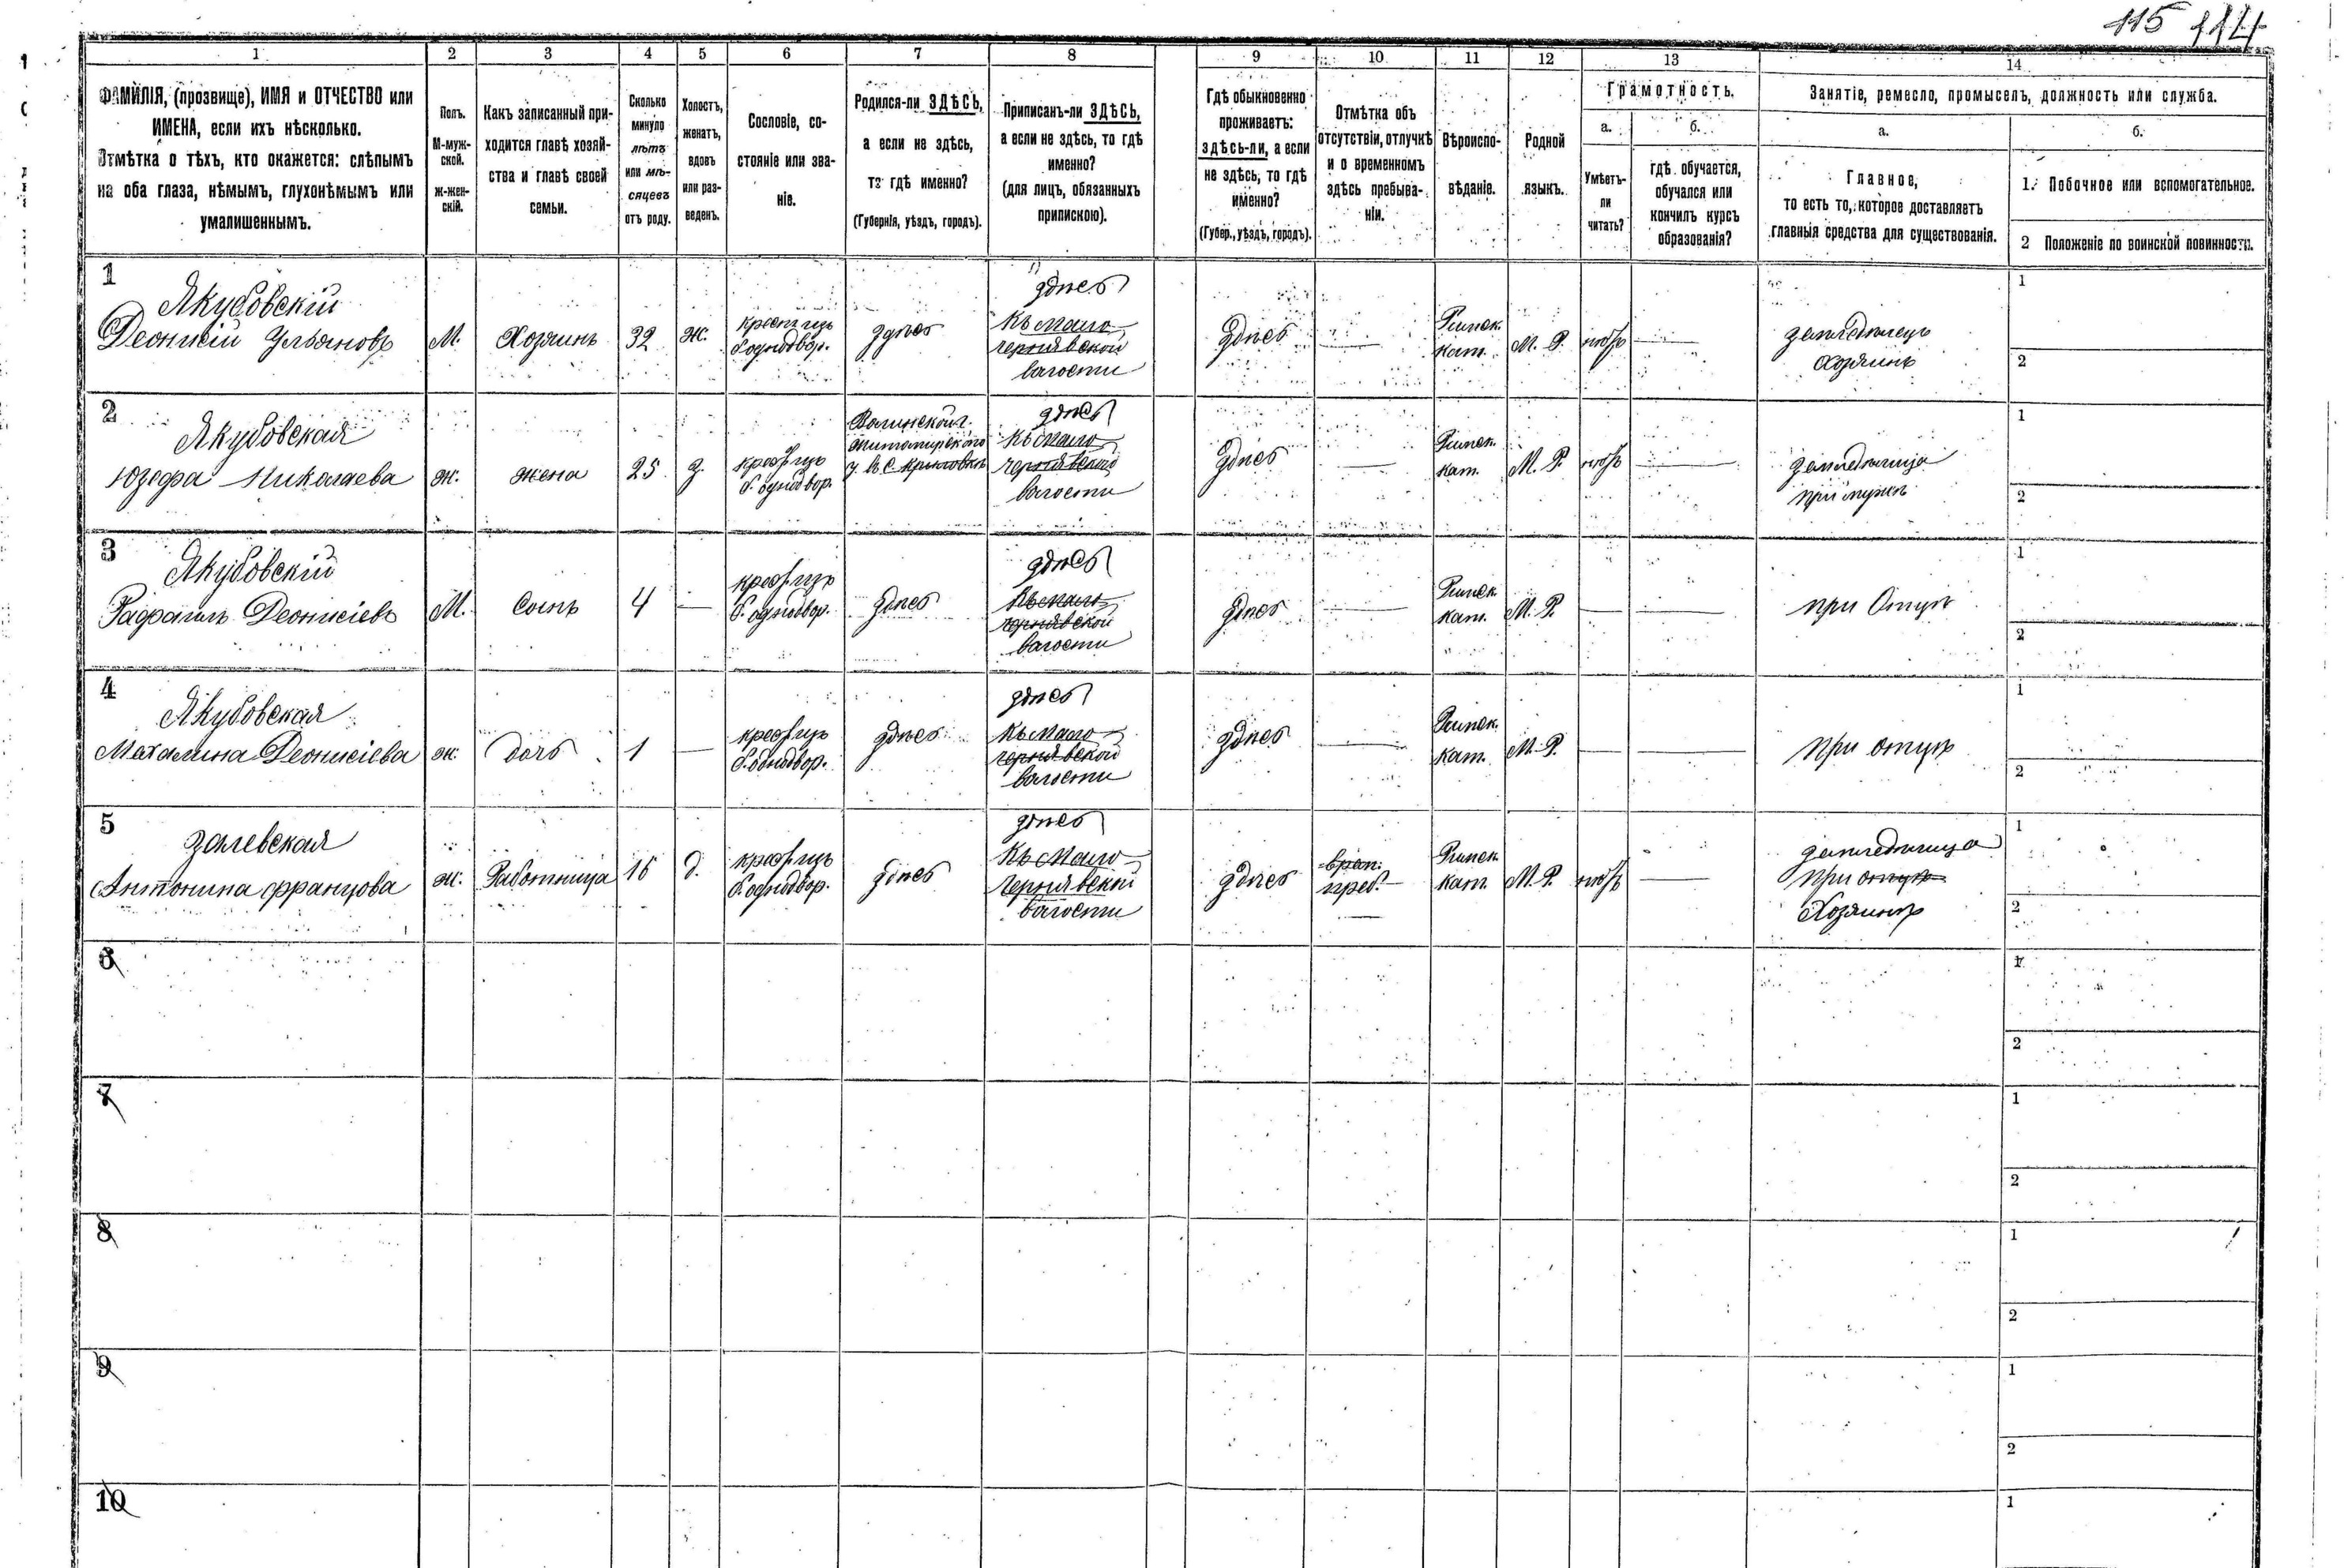 115 114
1 2 3 4 5 6 7 8 9 10 11 12 13 14
ФАМИЛІЯ, (прозвище), ИМЯ и ОТЧЕСТВО или
ИМЕНА, если ихъ нѣсколько.
Отмѣтка о тѣхъ, кто окажется: слѣпымъ
на оба глаза, нѣмымъ, глухонѣмымъ или
умалишеннымъ.
Полъ.
М-муж-
ской.
ж-жен-
скій.
Какъ записанный при-
ходится главѣ хозяй-
ства и главѣ своей
семьи.
Сколько
минуло
лѣтъ
или мѣ-
сяцевъ
отъ роду.
Холостъ,
женатъ,
вдовъ
или раз-
веденъ.
Сословіе, со-
стояніе или зва-
ніе.
Родился-ли ЗДѢСЬ,
а если не здѣсь,
то гдѣ именно?
(Губернія, уѣздъ, городъ).
Приписанъ-ли ЗДѢСЬ,
а если не здѣсь, то гдѣ
именно?
(для лицъ, обязанныхъ
припискою).
Гдѣ обыкновенно
проживаетъ:
здѣсь-ли, а если
не здѣсь, то гдѣ
именно?
(Губер., уѣздъ, городъ).
Отмѣтка объ
отсутствіи, отлучкѣ
и о временномъ
здѣсь пребыва-
ніи.
Вѣроиспо-
вѣданіе.
Родной
языкъ.
Грамотность.
а.
Умѣетъ-
ли
читать?
б.
гдѣ обучается,
обучался или
кончилъ курсъ
образованія?
Занятіе, ремесло, промыселъ, должность или служба.
а.
Главное,
то есть то, которое доставляетъ
главныя средства для существованія.
б.
1. Побочное или вспомогательное.
2 Положеніе по воинской повинности.
1
Якубовскій
Деонисій Ульяновъ
М.
Хозяинъ
32
ж.
крест. изъ
б. однодвор.
здѣсь
здѣсь
Къ мало
чернявской
волости
здѣсь
—
Римск.
кат.
М. Р.
нѣтъ
—
земледѣлецъ
хозяинъ
1
2
2
Якубовская
Юзефа Николаева
ж.
жена
25
з.
крест. изъ
б. однодвор.
Волинской г.
житомирского
у. в. с.
здѣсь
Къ мало
чернявской
волости
здѣсь
—
Римск.
кат.
М. Р.
нѣтъ
—
земледѣлица
при мужѣ
1
2
3
Якубовскій
Рафаилъ Деонисіевъ
М.
Сынъ
4
—
крест. изъ
б. однодвор.
здѣсь
здѣсь
Къ мало
чернявской
волости
здѣсь
—
Римск.
кат.
М. Р.
—
—
при Отцѣ
1
2
4
Якубовская
Махалина Деонисіева
ж.
дочь
1
—
крест. изъ
б. однодвор.
здѣсь
здѣсь
Къ мало
чернявской
волости
здѣсь
—
Римск.
кат.
М. Р.
—
—
при отцѣ
1
2
5
Залевская
Антонина францова
ж.
Работница
16
д.
крест. изъ
б. однодвор.
здѣсь
здѣсь
Къ мало
чернявской
волости
здѣсь
врем.
преб.
—
Римск.
кат.
М. Р.
нѣтъ
—
земледѣлица
при отцѣ
Хозяинѣ
1
2
6
1
2
7
1
2
8
1
2
9
1
2
10
1